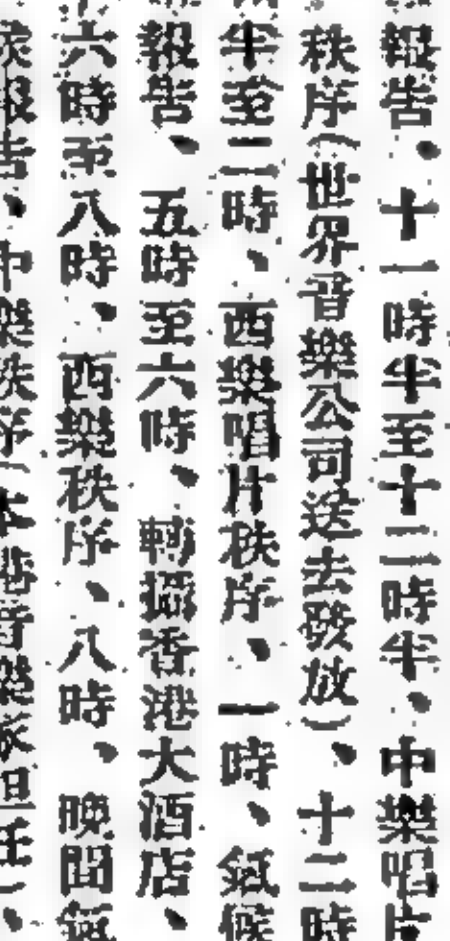 報告、十一時半至十二時半、中樂唱片
秩序（世界音樂公司送去發放）、十二時
半至二時、西樂唱片秩序、一時、氣候
報告、五時至六時、轉播香港大酒店、
六時至八時、西樂秩序、八時、晚間氣
報告、中樂秩序（本港音樂家担任）、